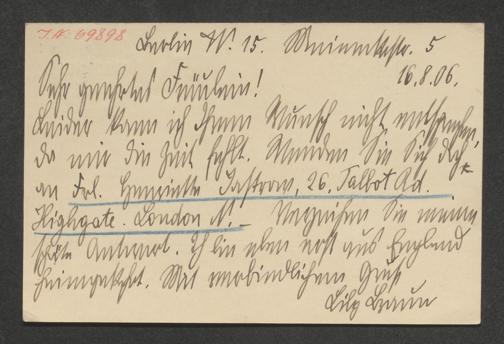 I.N. 69898
Berlin W. 15. Meinekestr. 5
16.8.06.
Sehr geehrtes Fräulein!
Leider kann ich Ihrem Wunsch nicht entsprechen,
da mir die Zeit fehlt. Wenden Sie Sich doch
an Frl. Henriette Jastrow, 26, Talbot Rd.
Highgate. London N. – Verzeihen Sie meine
späte Antwort. Ich bin eben erst aus England
heimgekehrt. Mit verbindlichem Gruß
Lily Braun